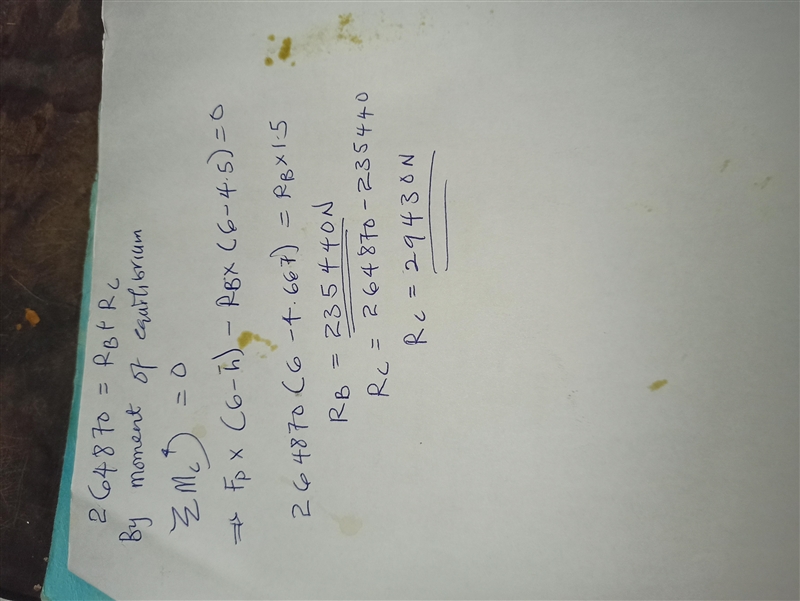 264870 = RB + RC
By moment of equilibrium
ΣMC = 0
⇒ FP × (6 - h̄) - RB × (6 - 4.5) = 0
264870 (6 - 4.667) = RB × 1.5
RB = 235440N
RC = 264870 - 235440
RC = 29430N